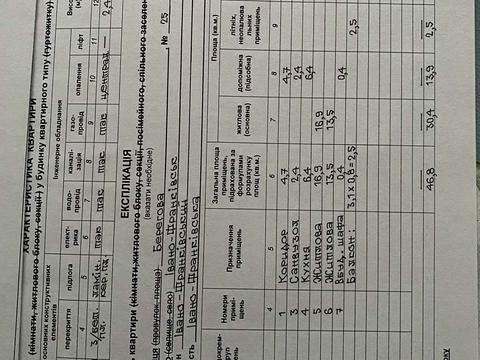 ХАРАКТЕРИСТИКА КВАРТИРИ
(кімнати, житлового блоку, секції) у будинку квартирного типу (гуртожитку)
основних конструктивних елементів
Інженерне обладнання
перекриття
підлога
елект-рика
водо-провід
каналі-зація
газо-провід
опалення
ліфт
4 5 6 7 8 9 10 11
3 бет. пл. ламін. кер.пл. так так так так централ — 2,4
ЕКСПЛІКАЦІЯ
квартири (кімнати, житлового блоку, секції, посімейного, спільного
(вказати необхідне)
(провулок, площа) Берегова , № 25
(селище, село) Івано-Франківськ
н Івано-Франківський
сть Івано-Франківська
Номери примі-щень
Призначення приміщень
Загальна площа приміщень, підрахована за формулами розрахунку площ (кв.м.)
Площа (кв.м.)
житлова (основна)
допоміжна (підсобна)
літніх, неопалюва-льних приміщень
4 5 6 7 8 9
1 Коридор 4,7 4,7
2 Санвузол 2,4 2,4
4 Кухня 6,4 6,4
5 Житлова 16,9 16,9
6 Житлова 13,5 13,5
7 Вбуд. шафа 0,4 0,4
Балкон: 3,1 x 0,8 = 2,5 2,5
46,8 30,4 13,9 2,5